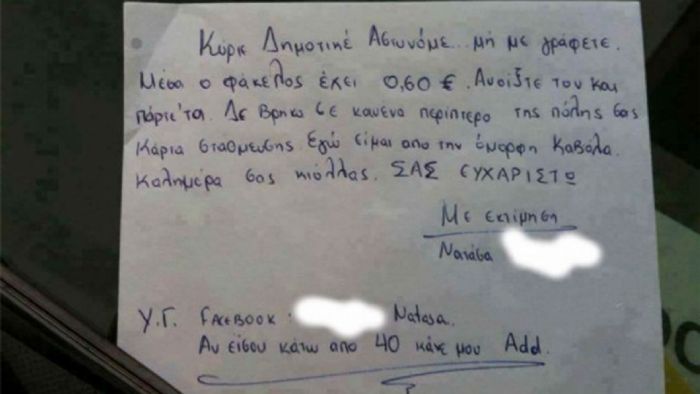 Κύριε Δημοτικέ Αστυνόμε... μή με γράφετε.
Μέσα ο φάκελος έχει 0,60 €. Ανοίξτε τον και
πάρτε'τα. Δε βρήκα σε κανένα περίπτερο της πόλης σας
κάρτα στάθμευσης. Εγώ είμαι από την όμορφη Καβάλα.
Καλημέρα σας κιόλλας. ΣΑΣ ΕΥΧΑΡΙΣΤΩ
Με εκτίμηση
Νατάσα
Υ.Γ. FACEBOOK : Natasa.
Αν είσου κάτω από 40 κάνε μου Add.